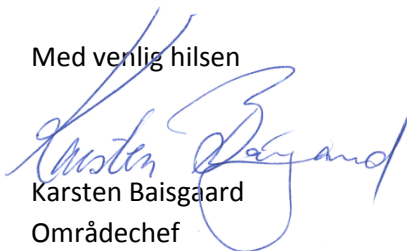 Med venlig hilsen
Karsten Baisgaard
Karsten Baisgaard
Områdechef